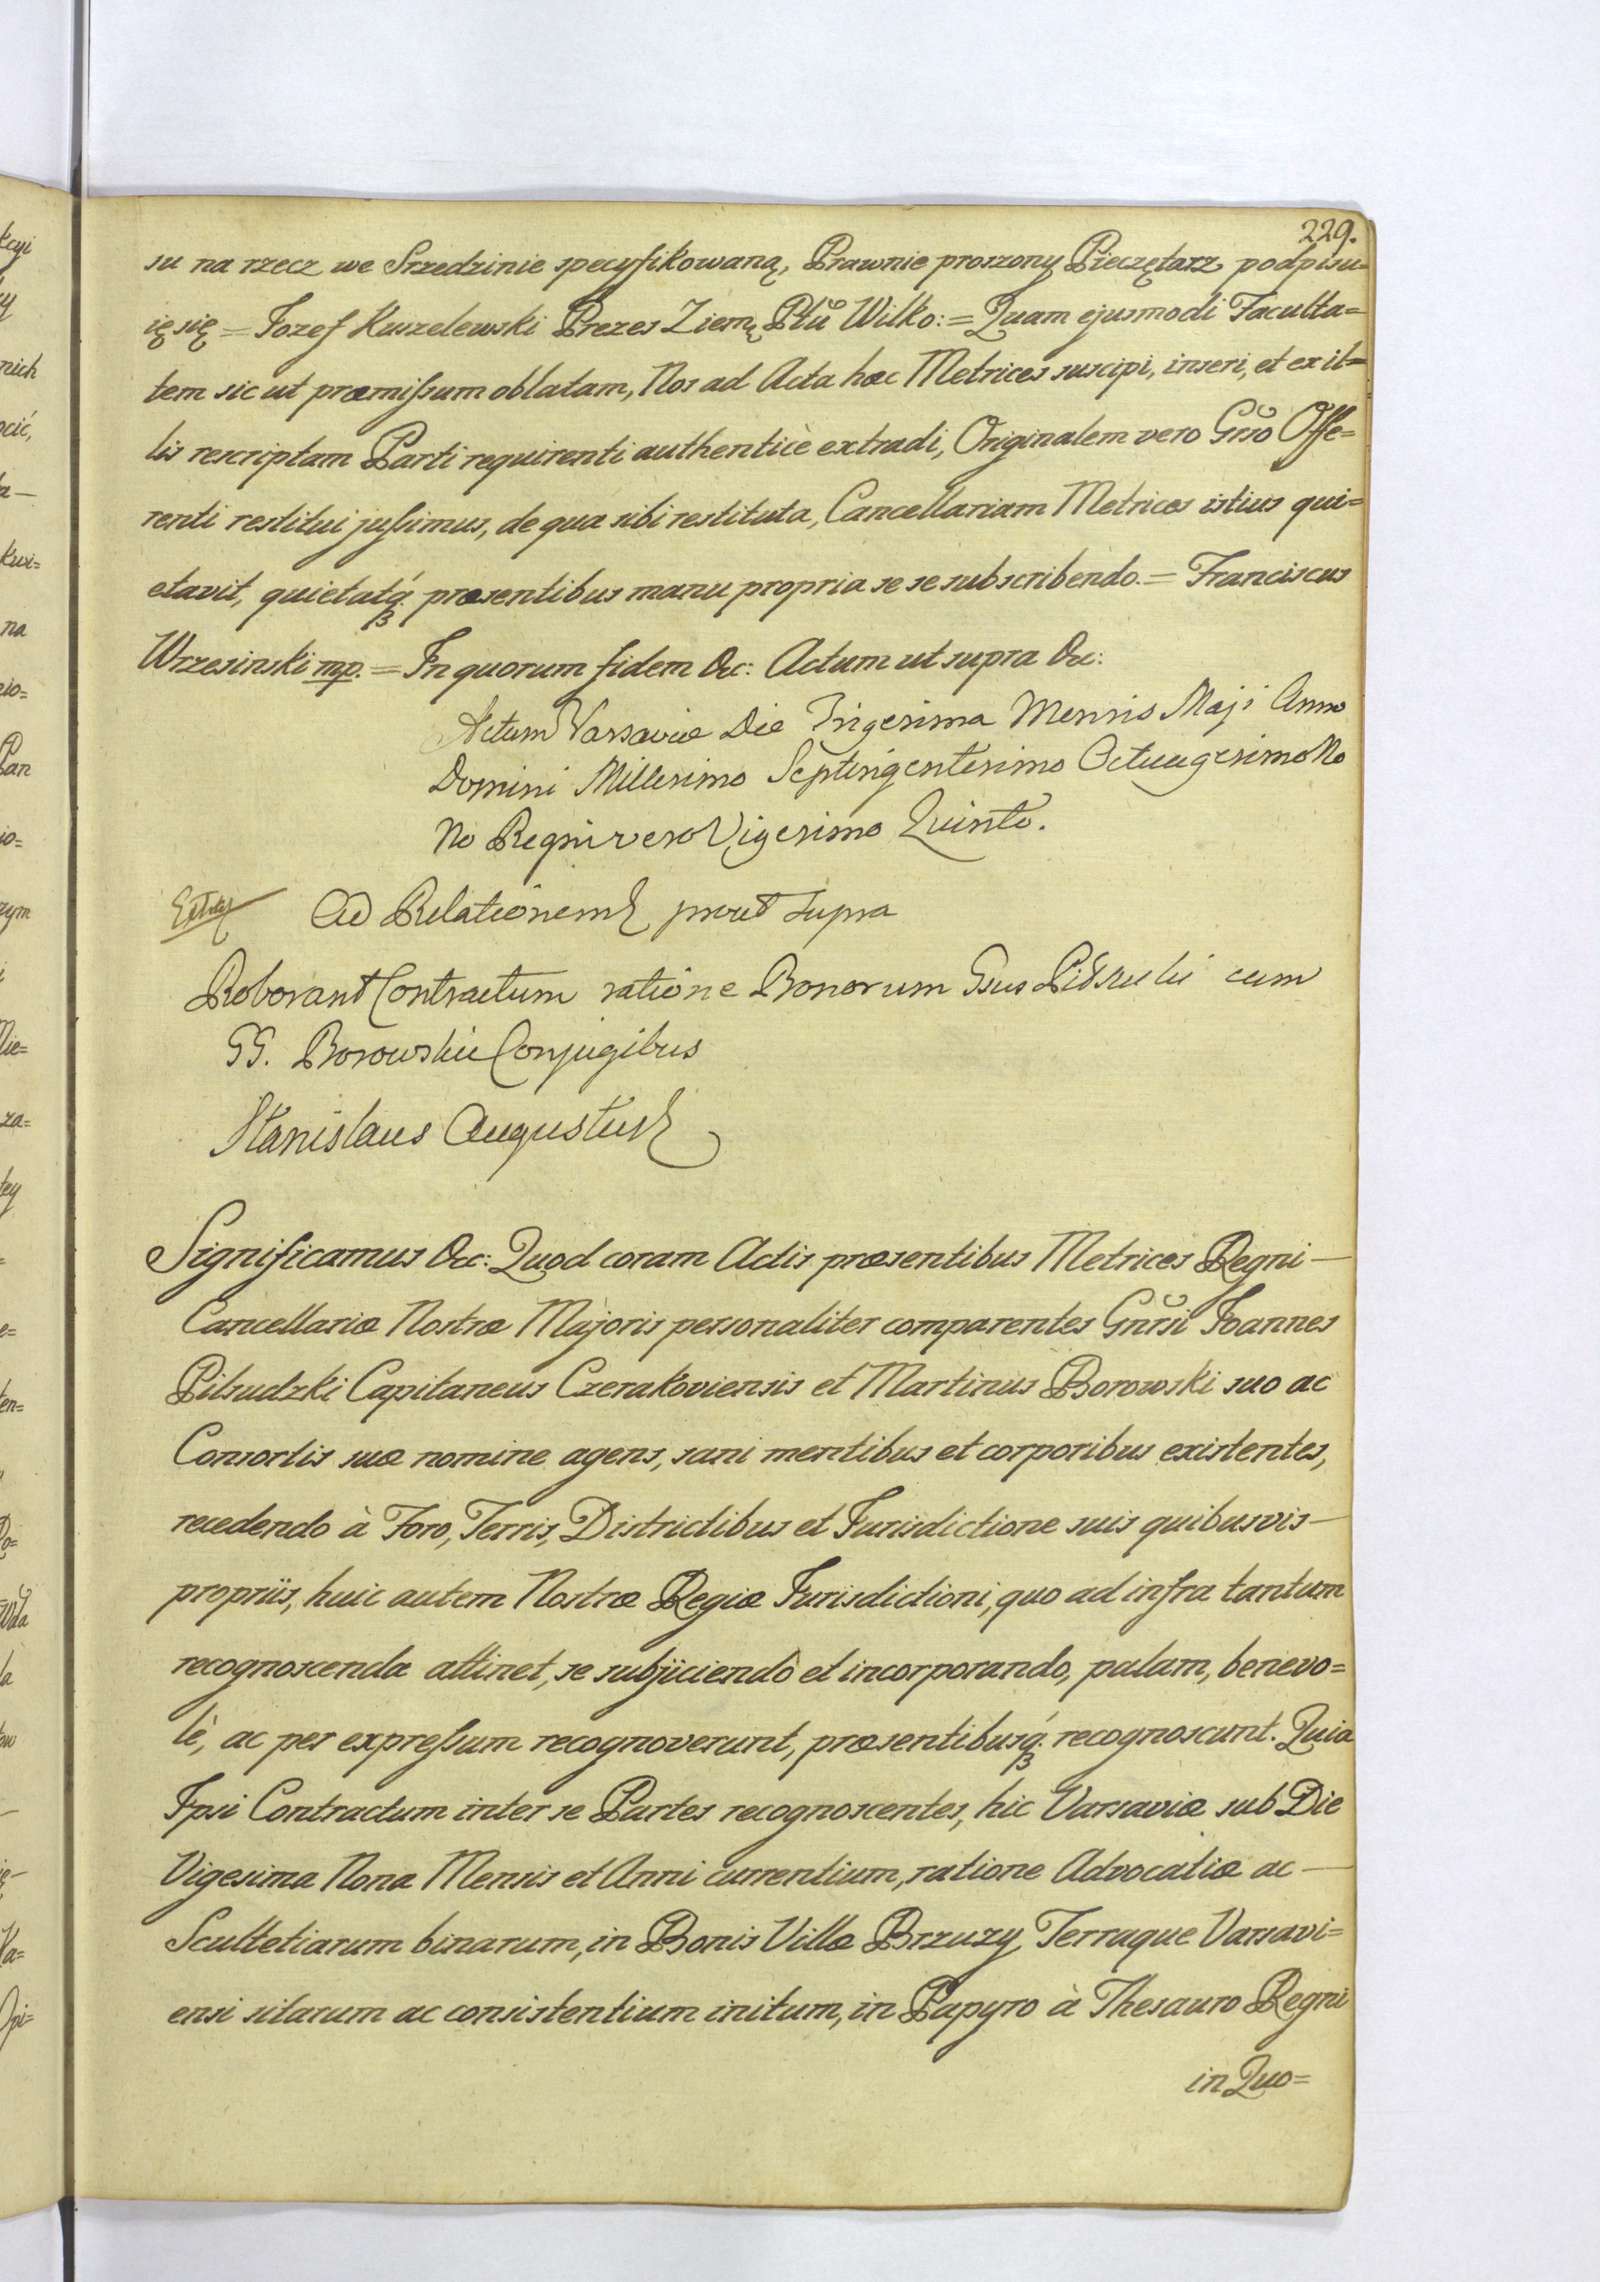 229.
su na rzecz we Srzedzinie specyfikowaną, Prawnie proszony Pieczętarz podpisu=
ię się = Jozef Kuszelewski Prezes Ziem. Ptŭ Wilko: = Quam ejusmodi Faculta=
tem sic ut præmissum oblatam, Nos ad Acta hæc Metrices suscipi, inseri, et ex il=
lis rescriptam Parti requirenti authenticè extradi, Originalem vero Grso Offe=
renti restitui jussimus, de qua sibi restituta, Cancellariam Metrices istius qui=
etavit, quietatq. præsentibus manu propria se se subscribendo. = Franciscus
Wrzesinski mp. = In quorum fidem &c: Actum ut supra &c:
Actum Varsaviæ Die Trigesima Mensis Maji Anno
Domini Millesimo Septingentesimo Octuagesimo No
no Regni vero Vigesimo Quinto.
Ad Relationem prout supra
Roborant Contractum ratione Bonorum Gsus Pilsudski cum
GG. Borowskie Conjugibus
Stanislaus Augustus
Significamus &c: Quod coram Actis præsentibus Metrices Regni —
Cancellariæ Nostræ Majoris personaliter comparentes Gnrsi Joannes
Pilsudzki Capitaneus Czerakoviensis et Martinus Borowski suo ac
Consortis suæ nomine agens, sani mentibus et corporibus existentes,
recedendo à Foro, Terris, Districtibus et Jurisdictione suis quibusvis —
propriis, huic autem Nostræ Regiæ Jurisdictioni, quo ad infra tantum
recognoscenda attinet, se subjiciendo et incorporando, palam, benevo=
lè, ac per expressum recognoverunt, præsentibusq. recognoscunt. Quia
Ipsi Contractum inter se Partes recognoscentes, hic Varsaviæ sub Die
Vigesima Nona Mensis et Anni currentium, ratione Advocatiæ ac —
Scultetiarum binarum, in Bonis Villæ Brzuzy Terraque Varsavi=
ensi sitarum ac consistentium initum, in Papyro à Thesauro Regni
in Quo=